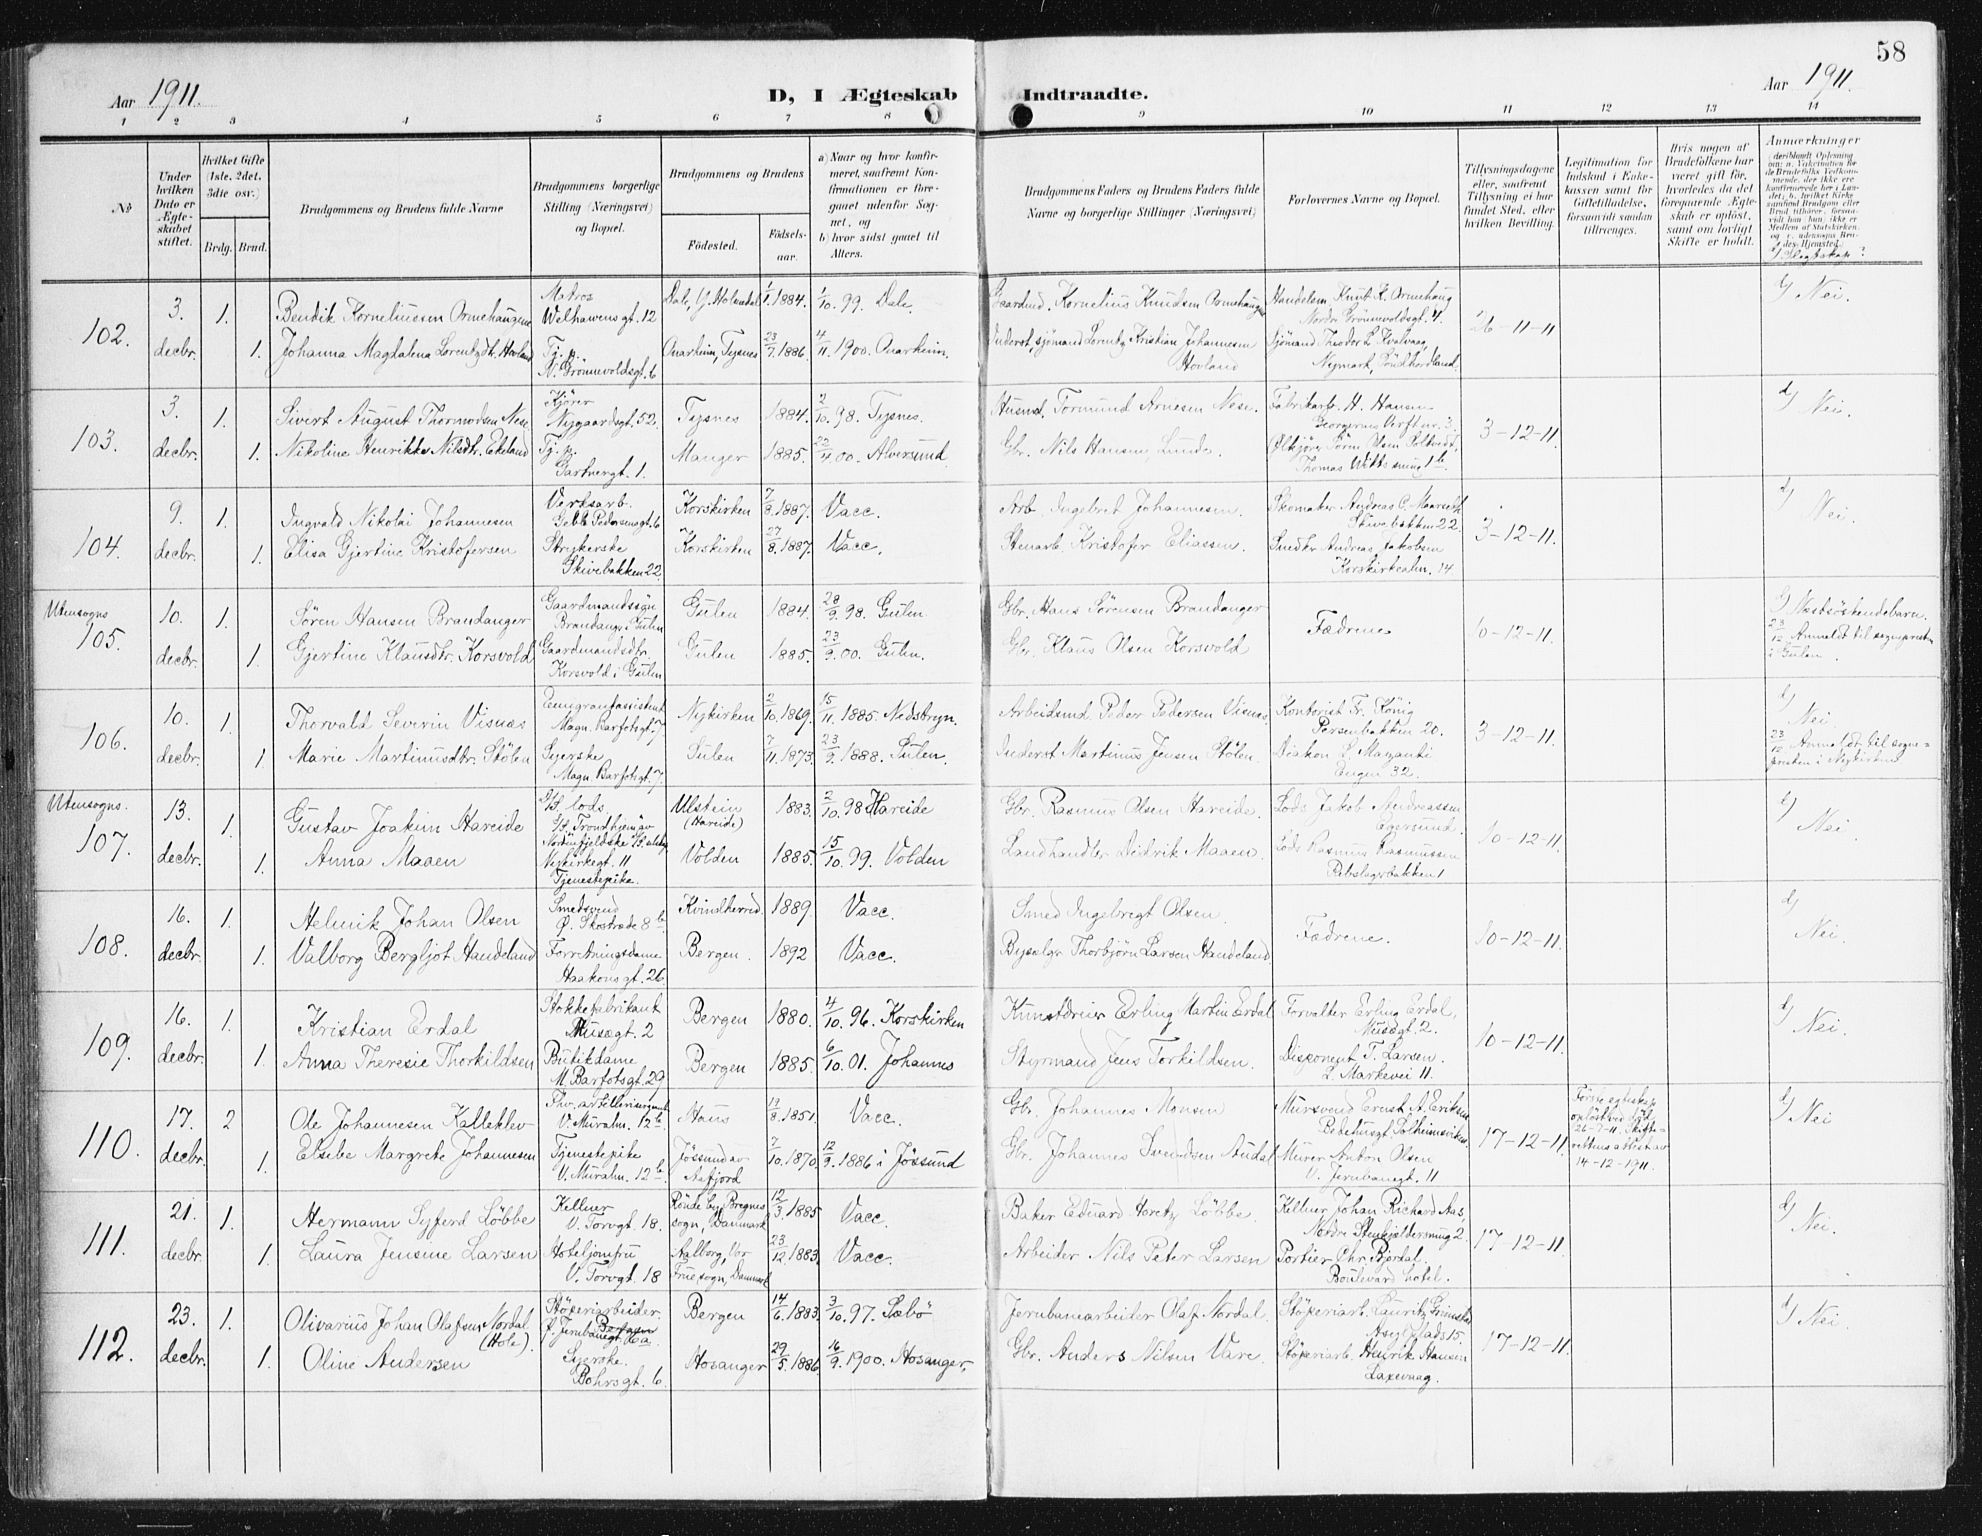 58
Aar 1911.
D, I Ægteskab Indtraadte.
Aar 1911.
1 2 3 4 5 6 7 8 9 10 11 12 13 14
№
Under hvilken Dato er Ægteskabet stiftet.
Hvilket Gifte (1ste, 2det, 3die osv.)
Brdg. Brud.
Brudgommens og Brudens fulde Navne
Brudgommens borgerlige Stilling (Næringsvei) og Bopæl.
Brudgommens og Brudens
Födested.
Födselsaar.
a) Naar og hvor konfirmeret, saafremt Konfirmationen er foregaaet udenfor Sognet, og
b) hvor sidst gaaet til Alters.
Brudgommens Faders og Brudens Faders fulde Navne og borgerlige Stillinger (Næringsvei)
Forlovernes Navne og Bopæl.
Tillysningsdagene eller, saafremt Tillysning ei har fundet Sted, efter hvilken Bevilling.
Legitimation for Indskud i Enkekassen samt for Giftetilladelse, forsaavidt saadan tiltrænges.
Hvis nogen af Brudefolkene har været gift før, hvorledes da det foregaaende Ægteskab er oplöst, samt om lovligt Skifte er holdt.
Anmerkninger
d/ Slegtskap?
102. 3. decbr. 1. Bendik Korneliussen Ormehaugene
Matros Welhavensgt. 12
Dale, Y. Holmedal 1/1 1884. 1/10 99. Dale.
Gaardmd. Kornelius Knudsen Ormehaugene
Handelsm. Knut K. Ormehaug Nordre Grönnevoldsgt. 4.
26-11-11
d/ Nei.
1. Johanna Magdalena Lorentzdtr. Hovland
Tj. p. N. Grönnevoldsgt. 6
Onarheim, Tysnes 23/7 1886 4/11 1900. Onarheim.
Inderst, sjömand Lorentz Kristian Johannesen Hovland
Sjömand Theodor L. Kvalvaag, Nymark, Söndhordland.
103. 3. decbr. 1. Sivert August Thormodsen Nese
Kjörer Nygaardsgt. 52
Tysnes 1884. 2/10 98. Tysnes.
Husmd. Tormund Arnesen Nese.
Fabrikarb. H. Hansen Georgernes Verft nr. 3
3-12-11.
d/ Nei.
1. Nikoline Henrikke Nilsdtr. Ekeland
Tj. p. Gartnergt. 1.
Manger 1885. 22/4 00. Alversund.
Gbr. Nils Hansen Lunde.
Ølkjörer Sörn Olsen Thomas Witts smug 1 b.
104. 9. decbr. 1. Ingvald Nikolai Johannesen
Verksarb. Geble Pedersensgt. 6
Korskirken 7/8 1887. Vacc.
Arb. Ingebret Johannesen.
Skomaker Andreas C. Maarseth Skivebakken 22.
3-12-11.
d/ Nei.
1. Elisa Gjertine Kristofersen
Strykerske Skivebakken 22
Korskirken 27/8 1887. Vacc.
Stenarb. Kristofer Eliassen.
Smedkr. Andreas Jakobsen Korskirkealm. 14
Utensogns
105. 10. decbr. 1. Sören Hansen Brandanger
Gaardmandssön Brandang. i Gulen
Gulen 1884. 28/9 98. Gulen.
Gbr. Hans Sörensen Brandanger
Fædrene
10-12-11.
d/ Næstsöskendebarn.
23/12 Anmeldt til sognepresten i Gulen.
1. Gjertine Klausdtr. Korsvold
Gaardmandsdtr. Korsvold i Gulen
Gulen 1885. 23/9 00. Gulen.
Gbr. Klaus Olsen Korsvold
106. 10. decbr. 1. Thorvald Severin Visnæs
Emigranfassistent Magn. Barfotsgt. 7
Nykirken 2/10 1869. 15/11 1885. Nedstryn.
Arbeidsmd. Peder Pedersen Visnæs
Kontorist Fr. König Persenbakken 20.
3-12-11.
d/ Nei
23/12 Anmeldt til sognepresten i Nykirken
1. Marie Martinusdtr. Stölen
Syerske Magn. Barfotsgt. 7
Sulen 7/11 1873. 23/9 1888. Sulen.
Inderst Martinus Jensen Stölen.
Diakon S. Engen 32.
Utensogns.
107. 13. decbr. 1. Gustav Joakim Hareide
D/S. lods D/S. Trondhjem av Nordenfjeldske D/S. selsk.
Nykirkegt. 11
Ulstein (Hareide) 1883. 2/10 98 Hareide
Gbr. Rasmus Olsen Hareide.
Lods Jakob Andreassen Egersund.
10-12-11.
d/ Nei
1. Anna Maaen
Tjenestepike.
Volden 1885. 15/10 99. Volden
Landhandler Didrik Maaen.
Lods Rasmus Rasmussen Rebslagerbakken 1
108. 16. decbr. 1. Helmik Johan Olsen
Smedsvend Ø. Skostræde 8 b.
Kvindherred. 1889. Vacc.
Smed Ingebregt Olsen.
Fædrene.
10-12-11.
d/ Nei.
1. Valborg Bergljot Handeland
Forretningsdame Haakonsgt. 26
Bergen. 1892 Vacc.
Byselgr. Thorbjörn Larsen Handeland
109. 16. decbr. 1. Kristian Erdal
Stokkefabrikant Musægt. 2
Bergen 1880. 4/10 96. Korskirken
Kunstdreier Erling Martin Erdal
Forvalter Erling Erdal, Musægt. 2.
10-12-11.
d/ Nei.
1. Anna Theresie Thorkildsen
Butikdame M. Barfotsgt. 29
Bergen 1885. 6/10 01. Johannes
Styrmand Jens Torkildsen.
Disponent T. Larsen. L. Markevei 11.
110. 17. decbr. 2 Ole Johannesen Kalleklev
Fhv. artillerisergeant V. Muralm. 12 b.
Haus 13/8 1851. Vacc.
Gbr. Johannes Monsen
Mursvend Ernst A. Eriksen Solheimsviken
17-12-11
Förste egteskap oplöst ved död 26-7-11. Skifterettens attest av 14-12-1911.
d/ Nei
1. Elsebe Margrete Johannesen
Tjenestepike V. Muralm. 12 b.
Jössund av Aafjord 7/10 1870. 12/9 1886 i Jössund
Gbr. Johannes Svendsen Audal
Murer Anton Olsen V. Jernbanegt. 11
111. 21. decbr. 1. Hermann Syferd Löbbe
Kellner V. Torvgt. 18.
Rönde by, Bregnes sogn, Danmark 12/3 1885 Vacc.
Baker Eduard Löbbe.
Kellner Johan Richard Aas, Nedre Stenkjeldersmug 2
17-12-11.
d/ Nei.
1. Laura Jensine Larsen
Hoteljomfru V. Torvgt. 18
Aalborg, Vor Fruesogn, Danmark 23/12 1883. Vacc.
Arbeider Nils Peter Larsen
Portier Chr. Bjordal. Boulevard hotel.
112. 23. decbr. 1. Olivarius Johan Olafsen Nordal (Hole).
Stöperiarbeider. f. Jernbanegt. 6 a
Bergen 14/6 1883. 3/10 97. Sæbö
Jernbanearbeider Olaf Nordal
Stöperiarb. Lauritz Grimstad Asylplads 15.
17-12-11.
d/ Nei.
1. Oline Andersen
Syerske. Bohrsgt. 6.
Hosanger 29/5 1886. 16/9 1900. Hosanger.
Gbr. Anders Nilsen Vare
Stöperiarb. Henrik Hansen Laxevaag.